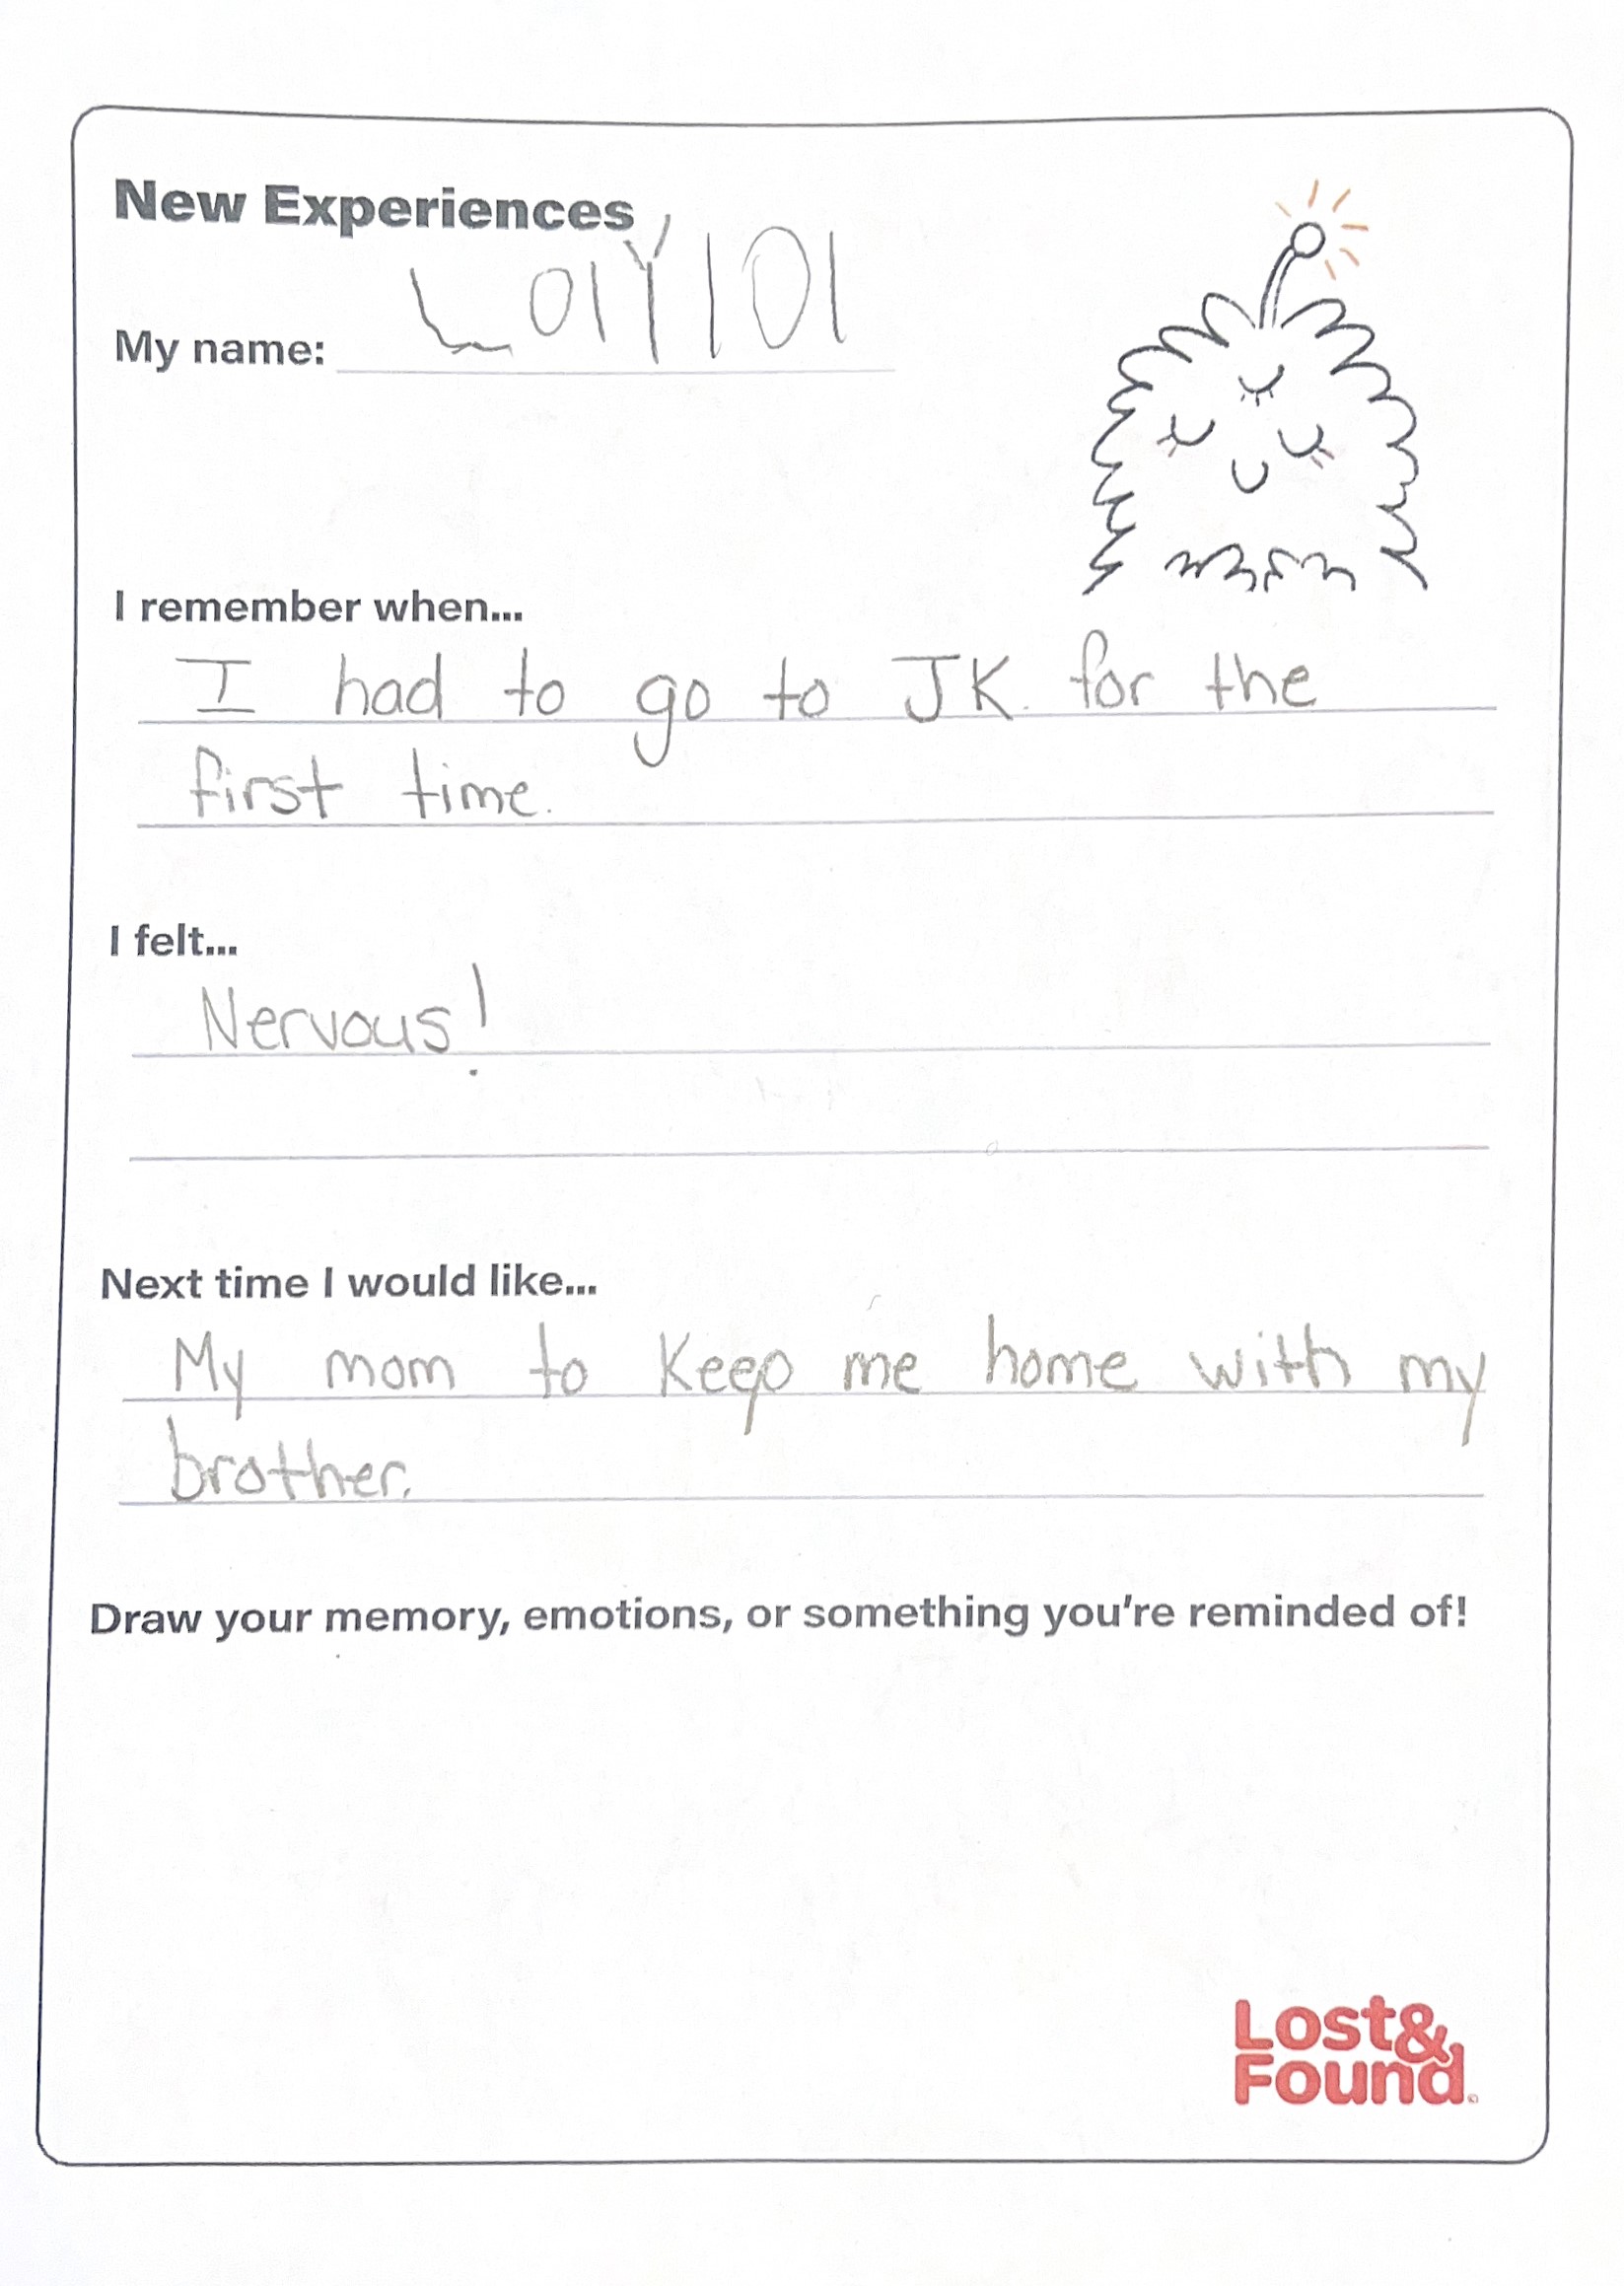 New Experiences
My name:
I remember when...
I had to go to JK for the
first time.
I felt...
Nervous!
Next time I would like...
My mom to Keep me home with my
brother.
Draw your memory, emotions, or something you're reminded of!
Lost&
Found